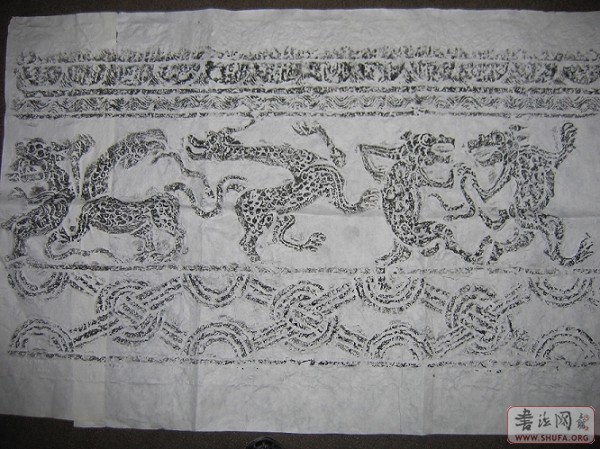 书法网
WWW.SHUFA.ORG